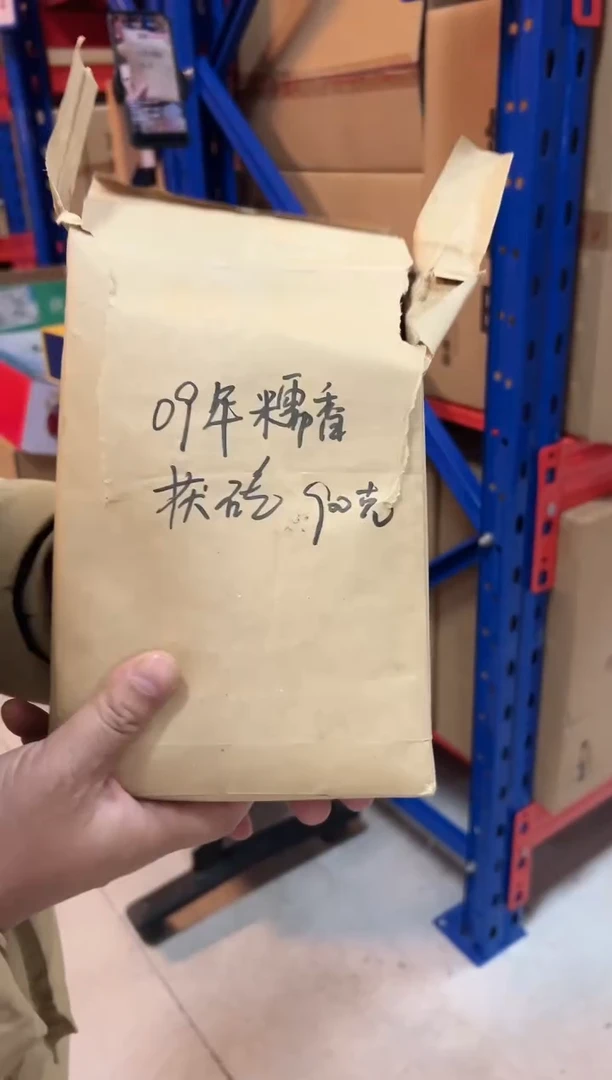 09年糯香
茯砖 900克